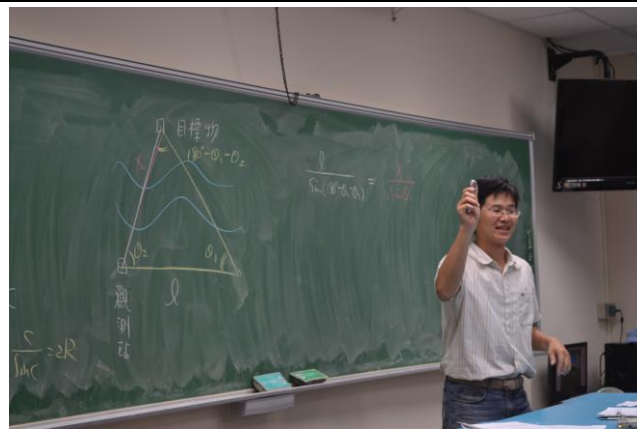 目標物
x
180°-θ₁-θ₂
θ₂
θ₁
l
觀測站
l/sin(180°-θ₁-θ₂) = x/sinθ₁
c/sin C = 2R